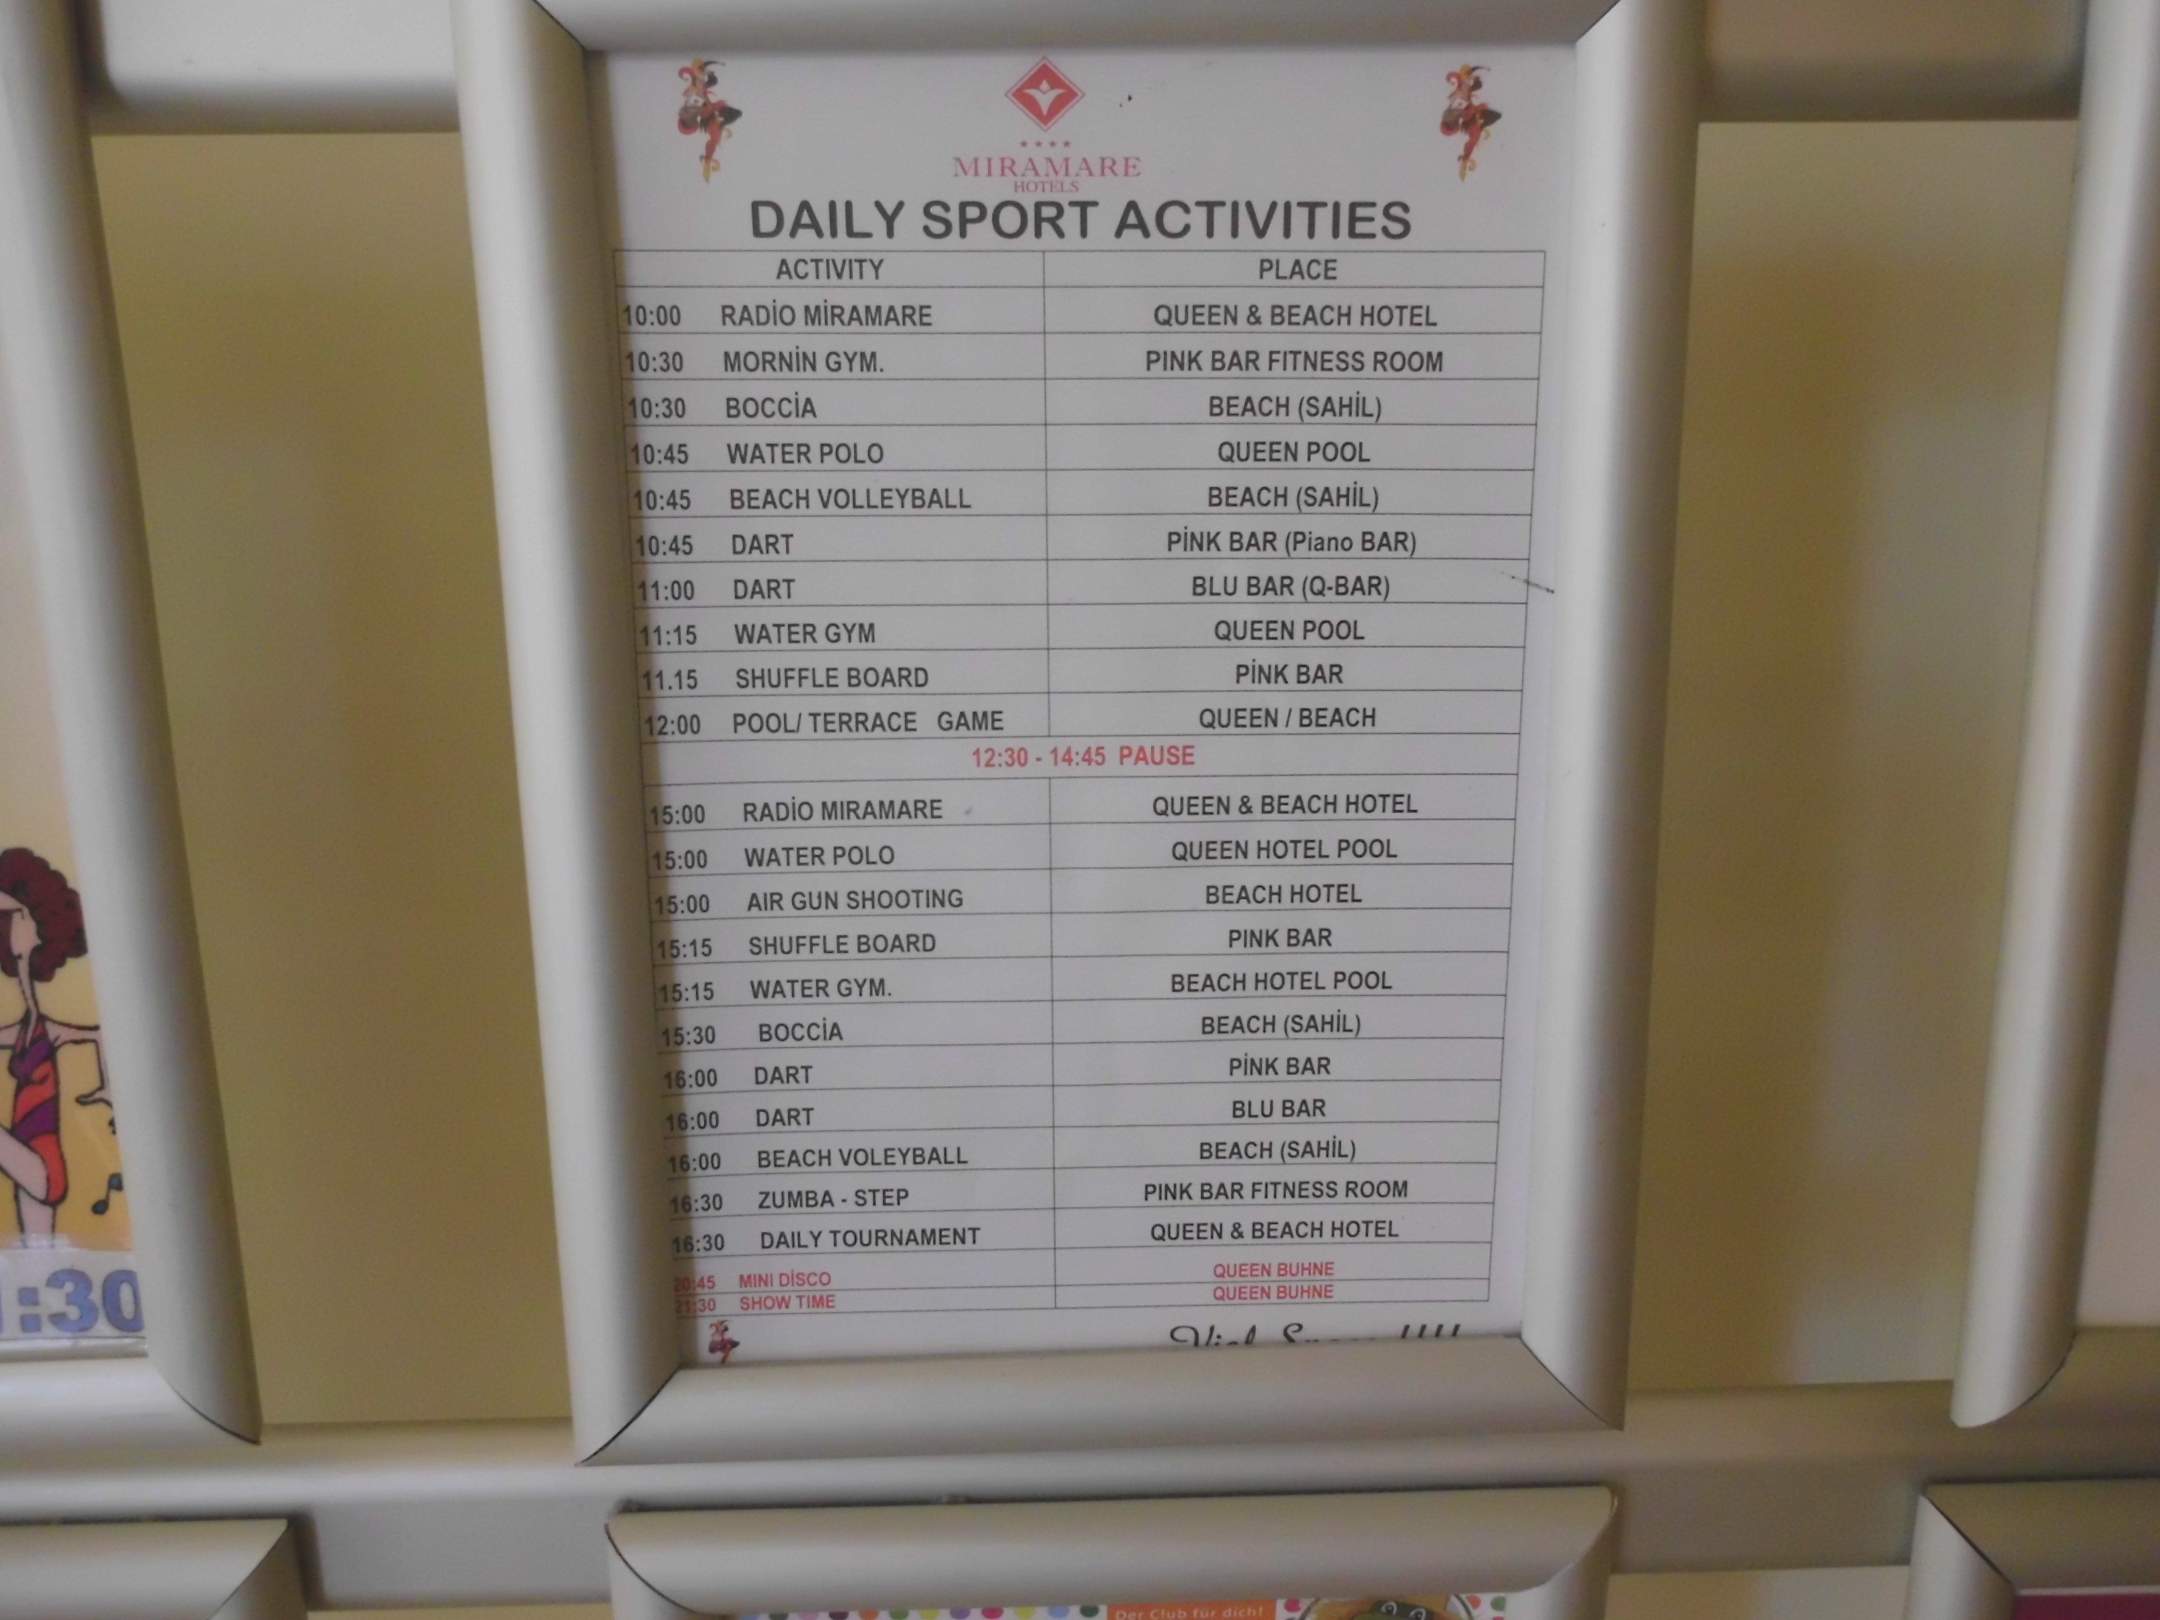 MIRAMARE
HOTELS
DAILY SPORT ACTIVITIES
ACTIVITY PLACE
10:00 RADİO MİRAMARE QUEEN & BEACH HOTEL
10:30 MORNİN GYM. PINK BAR FITNESS ROOM
10:30 BOCCİA BEACH (SAHİL)
10:45 WATER POLO QUEEN POOL
10:45 BEACH VOLLEYBALL BEACH (SAHİL)
10:45 DART PİNK BAR (Piano BAR)
11:00 DART BLU BAR (Q-BAR)
11:15 WATER GYM QUEEN POOL
11.15 SHUFFLE BOARD PİNK BAR
12:00 POOL/ TERRACE GAME QUEEN / BEACH
12:30 - 14:45 PAUSE
15:00 RADİO MIRAMARE QUEEN & BEACH HOTEL
15:00 WATER POLO QUEEN HOTEL POOL
15:00 AIR GUN SHOOTING BEACH HOTEL
15:15 SHUFFLE BOARD PINK BAR
15:15 WATER GYM. BEACH HOTEL POOL
15:30 BOCCİA BEACH (SAHİL)
16:00 DART PİNK BAR
16:00 DART BLU BAR
16:00 BEACH VOLEYBALL BEACH (SAHİL)
16:30 ZUMBA - STEP PINK BAR FITNESS ROOM
16:30 DAILY TOURNAMENT QUEEN & BEACH HOTEL
20:45 MINI DİSCO QUEEN BUHNE
21:30 SHOW TIME QUEEN BUHNE
:30
Der Club für dich!